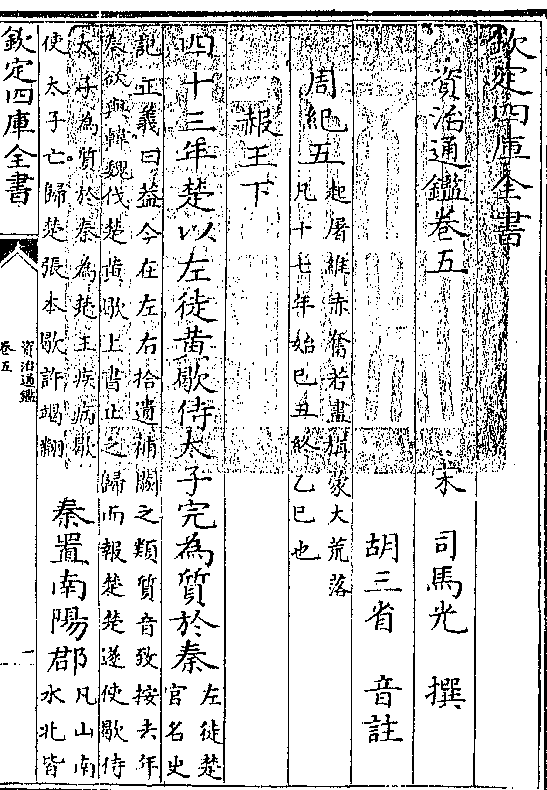 欽定四庫全書
資治通鑑卷五
宋 司馬光 撰
胡三省 音註
周紀五 起屠維赤奮若盡旃蒙大荒落
凡十七年始巳丑終乙巳也
赧王下
四十三年楚以左徒黄歇侍太子完為質於秦 左徒楚
官名史
記正義曰益今在左右拾遺補闕之類質音致按去年
秦欲與韓魏伐楚黄歇上書止之歸而報楚楚遂使歇侍
太子為質於秦為楚王疾病歇
使太子亡歸楚張本歇許竭翻
秦置南陽郡 凡山南
水北皆
欽定四庫全書
資治通鑑
卷五
一